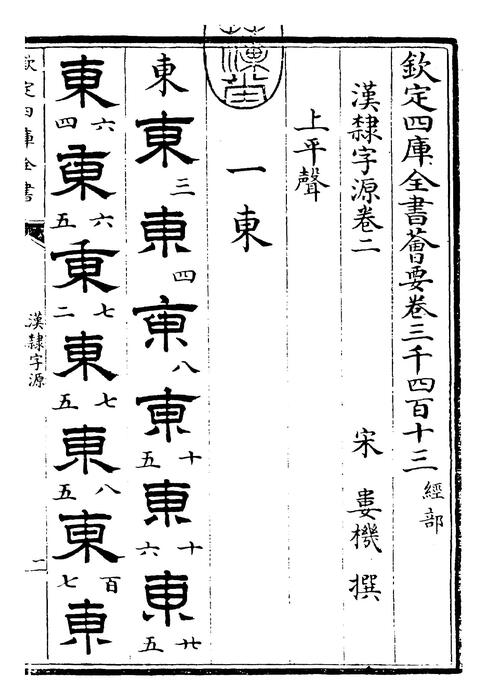 欽定四庫全書薈要卷三千四百十三 經部
漢隸字源卷二
宋 婁機 撰
上平聲
一東
東 東三 東四 東八 東十五 東十六 東廿五
東六四 東六五 東七二 東七五 東八五 東百七 東
欽定四庫全書
漢隸字源
二